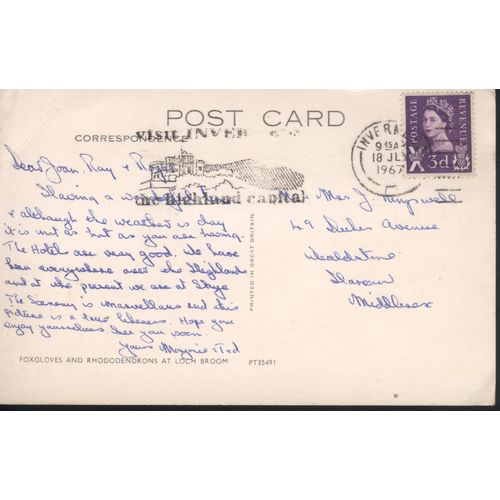 POST CARD
CORRESPONDENCE
VISIT INVERNESS
the highland capital
INVERNESS
9 15AM
18 JLY
1967
POSTAGE
REVENUE
3d
Dear Joan, Ray &
Having a
& although the weather is dry
it is not as hot as you are having.
The Hotels are very good. We have
been everywhere over the Highlands
and at the present we are at Skye
The Scenery is Marvellous and this
picture is a true likeness. Hope you
enjoy yourselves See you soon.
Yours Marjorie & Ted
Mrs J.
49 Avenue
Wealdstone
Harrow
Middlesex
PRINTED IN GREAT BRITAIN
FOXGLOVES AND RHODODENDRONS AT LOCH BROOM PT35491